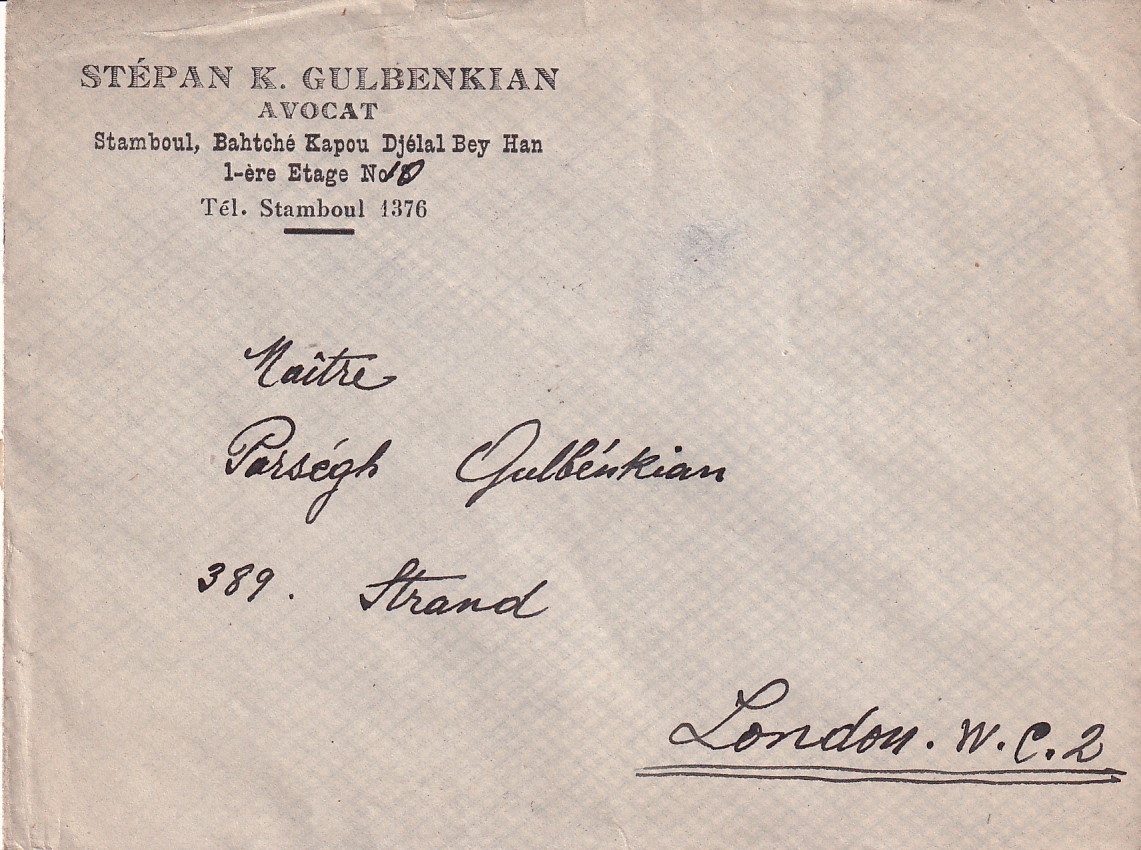 STÉPAN K. GULBENKIAN
AVOCAT
Stamboul, Bahtché Kapou Djélal Bey Han
1-ère Etage No 18
Tél. Stamboul 1376
Maître
Parségh Gulbénkian
389. Strand
London. W.C.2